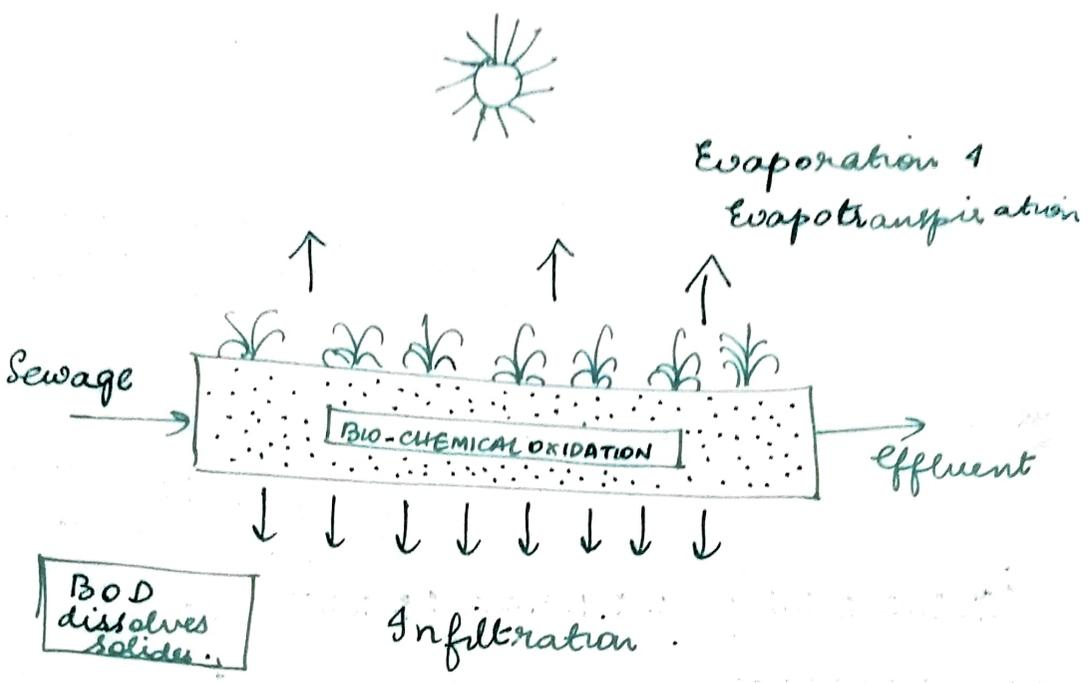 Evaporation &
Evapotranspiration
Sewage
BIO-CHEMICAL OXIDATION
Effluent
BOD
dissolves
solides.
Infiltration.